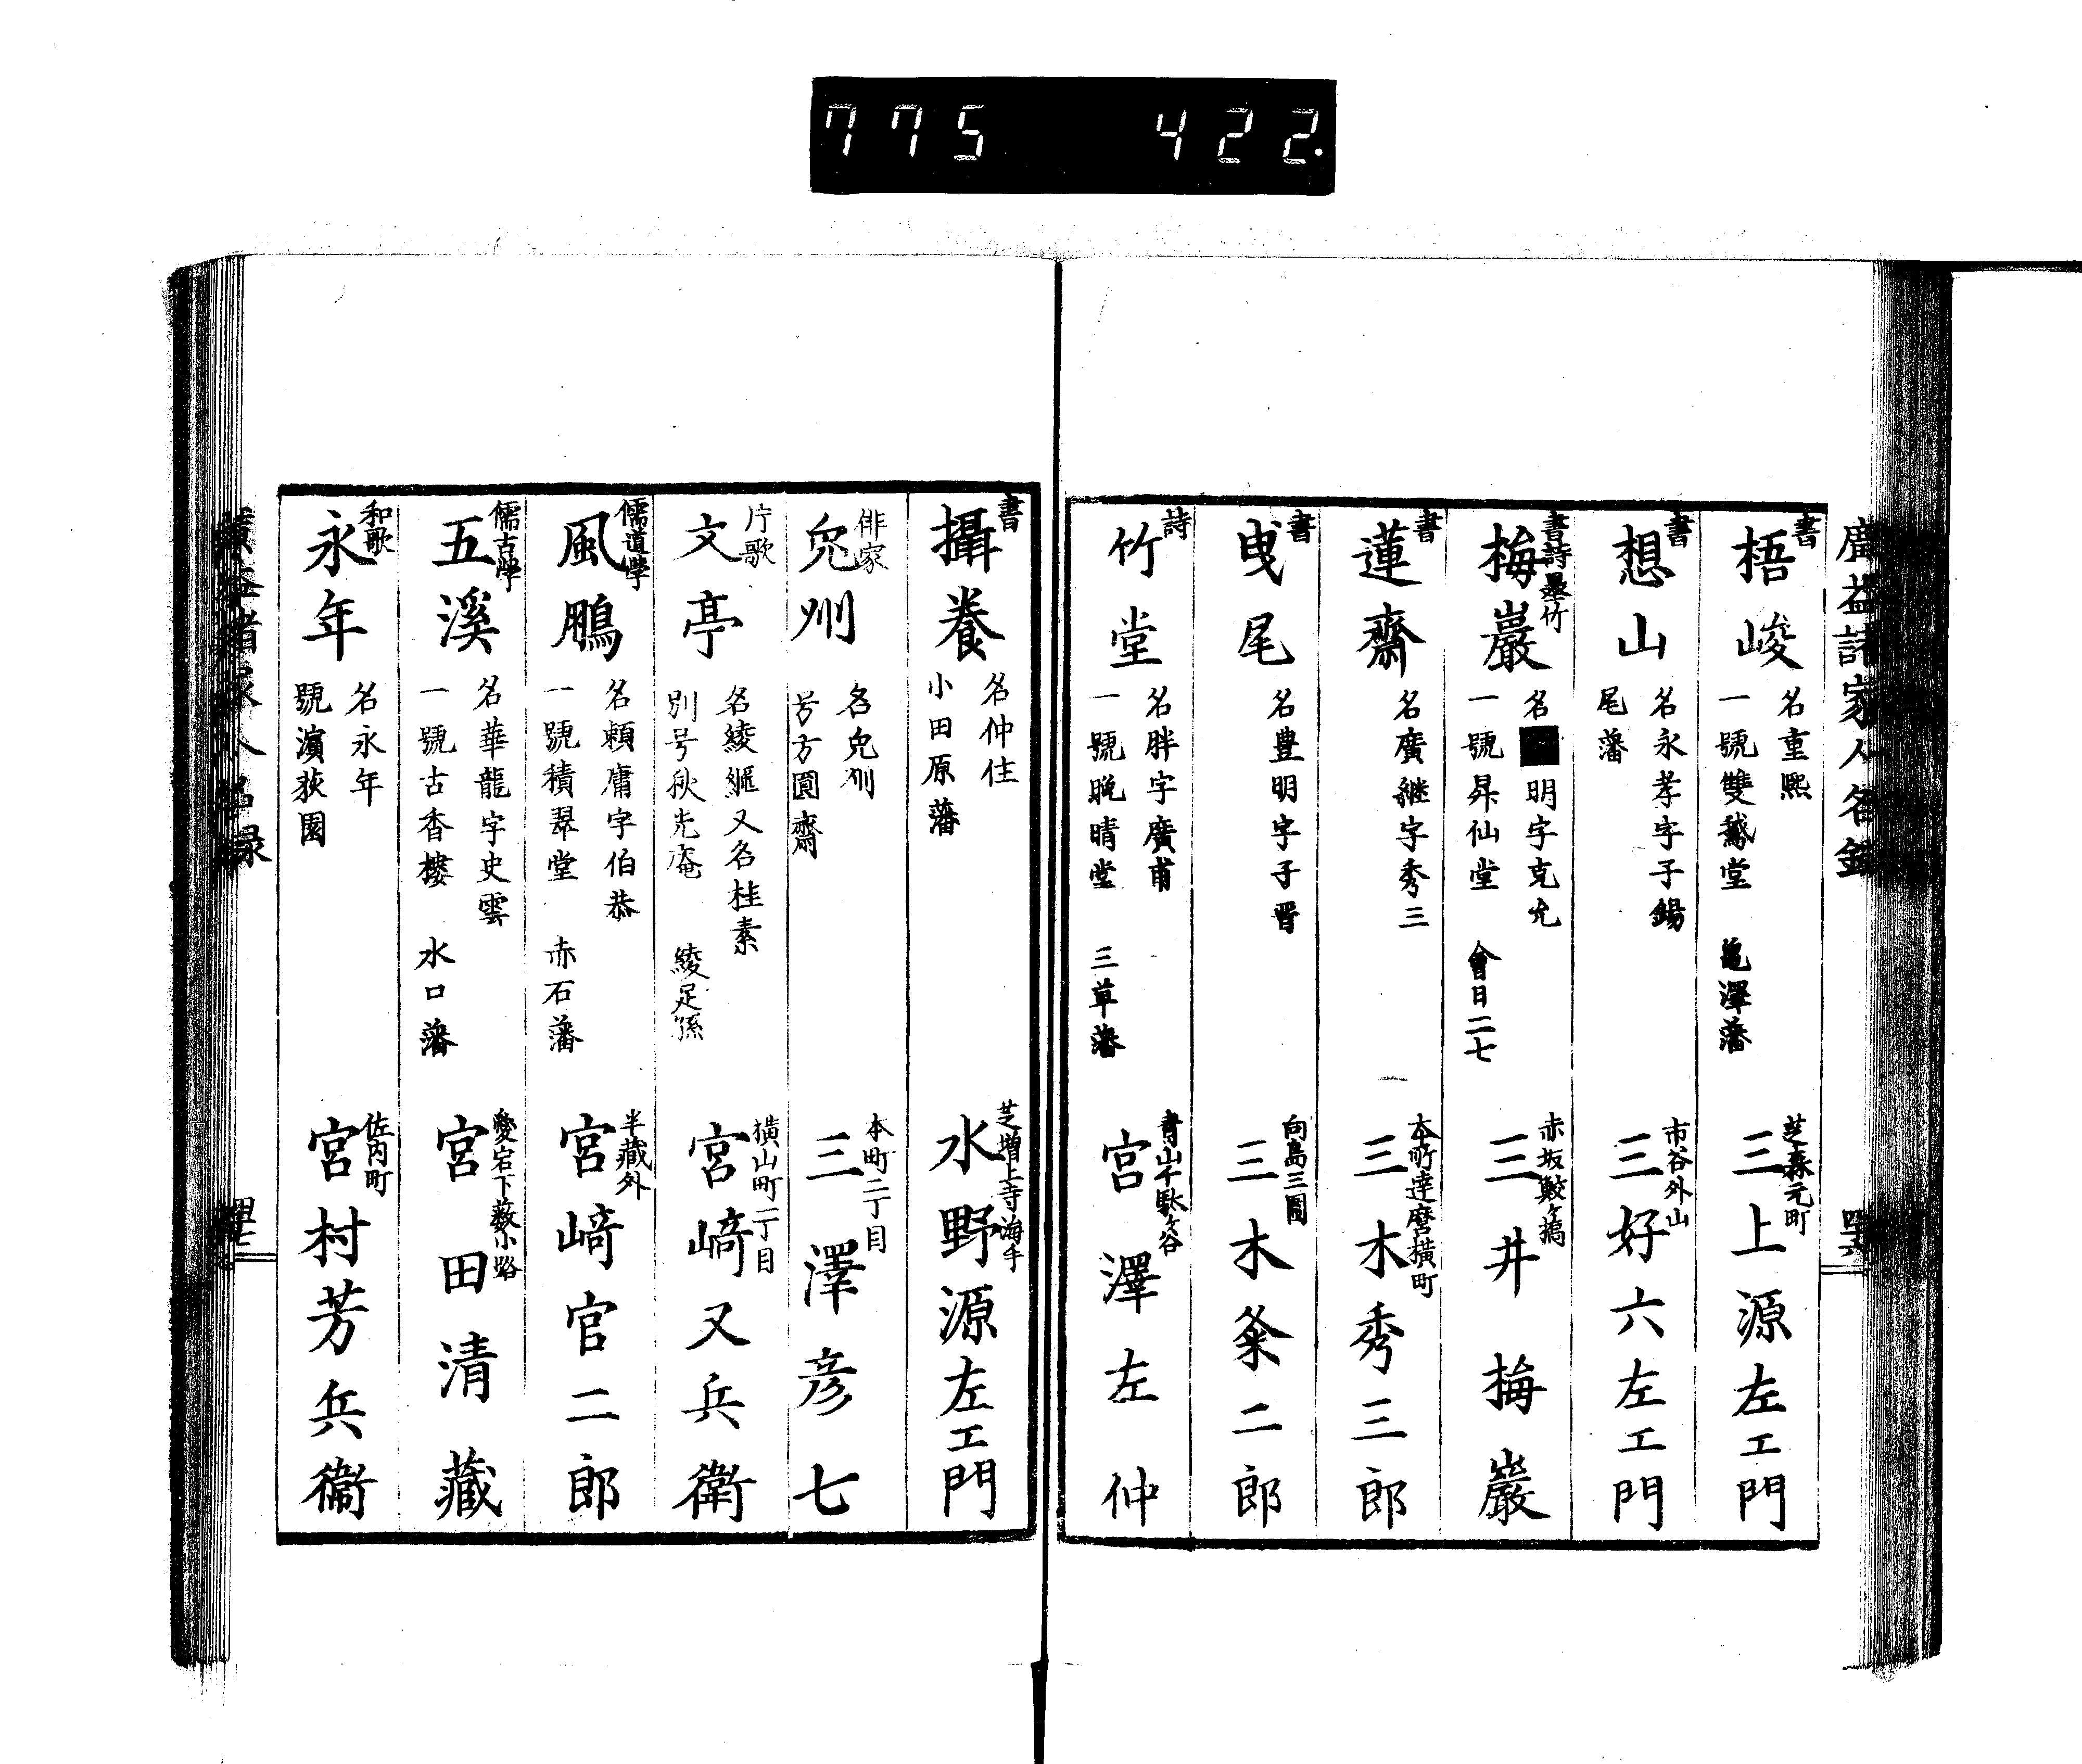 775 422.
廣益諸家人名録
四十六
書
梧峻
名重熈
一號雙鵞堂 亀澤藩
芝森元町
三上源左エ門
書
想山
名永孝字子錫
尾藩
市谷外山
三好六左エ門
書詩墨竹
梅巖
名■明字克允
一號昇仙堂 會日二七
赤坂鮫ケ橋
三井梅巖
書
蓮齋
名廣継字秀三
本所達磨横町
三木秀三郎
書
曳尾
名豊明字子晋
向島三圍
三木粂二郎
詩
竹堂
名胖字廣甫
一號晩晴堂 三草藩
青山千駄ケ谷
宮澤左仲
書
攝養
名仲住
小田原藩
芝増上寺海手
水野源左エ門
俳家
免州
名免州
号方圓齋
本町二丁目
三澤彦七
片歌
文亭
名綾 又名桂素
別号秋光庵 綾足孫
横山町二丁目
宮﨑又兵衛
儒道学
風鵬
名頼庸字伯恭
一號積翠堂 赤石藩
半藏外
宮﨑官二郎
儒古学
五溪
名華龍字史雲
一號古香樓 水口藩
愛宕下薮小路
宮田清藏
和歌
永年
名永年
號濱荻園
佐内町
宮村芳兵衞
廣益諸家人名録
四十七